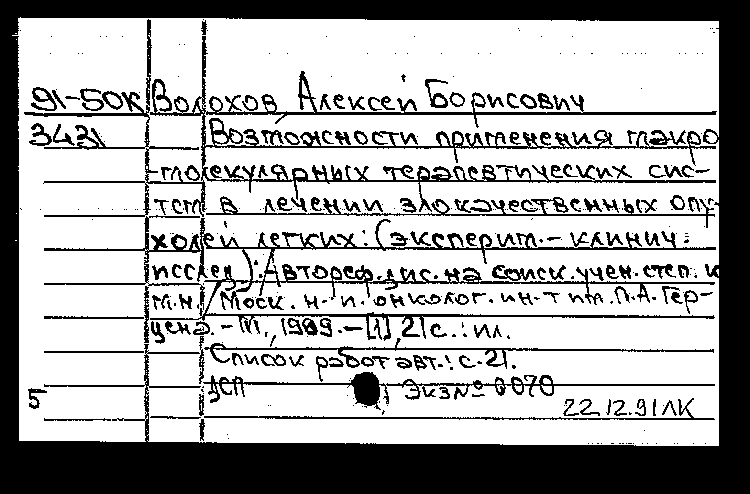 91-50К Волохов, Алексей Борисович
3431 Возможности применения макро
-молекулярных терапевтических сис-
тем в лечении злокачественных опу-
холей легких: (эксперим. - клинич.
исслед.): Автореф. дис. на соиск. учен. степ. к
м.н. / Моск. н.-и. онколог. ин-т им. П.А. Гер-
цена. - М., 1989. - [1], 21 с.: ил.
Список работ авт.: с. 21.
ДСП Экз № 0070
5 22.12.91 ЛК